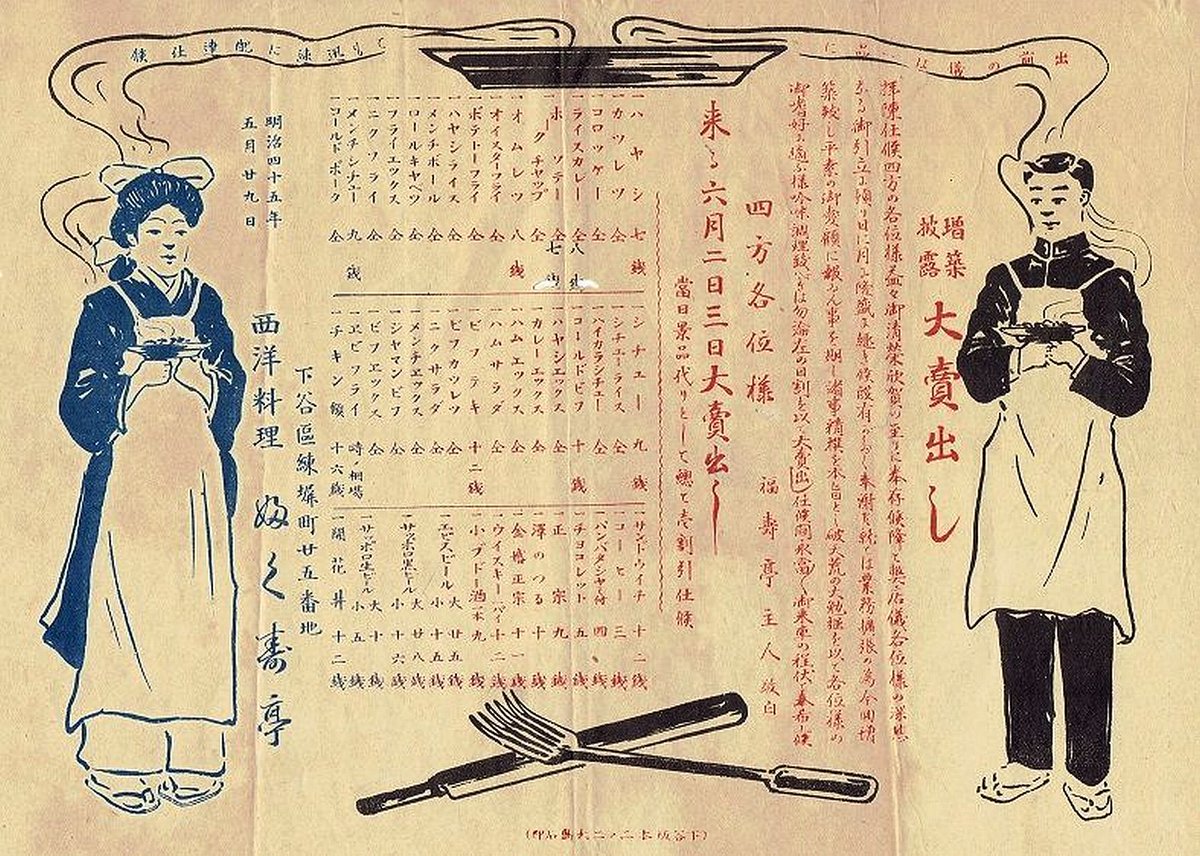 出前の儀は
に迅速に配達仕候
増築
披露
大賣出し
拝陳仕候四方の各位様益々御清栄欣賀の至りに奉存候陳ば弊店儀各位様の深甚
なる御引立に頼り日に月に隆盛に趣き
築致し平素の御愛顧に報ゐん事を期し諸事精撰を本旨とし破天荒の大勉強を以て各位様の
御嗜好に適ふ様吟味調理致
四方各位様
福寿亭主人敬白
来る六月二日三日大賣出し
當日景品代りとして總て壱割引仕候
一ハヤシ 七銭
一カツレツ 仝
一コロッケー 仝
一ライスカレー 仝
一ホークソテー 仝
一ホークチャップ 仝
一オムレツ 八銭
一オイスターフライ 仝
一ポテートーフライ 仝
一ハヤシライス 仝
一メンチボール 仝
一ロールキャベツ 仝
一フライエックス 仝
一ニクフライ 仝
一メンチシチュー 九銭
一コールドポーク 仝
一シチュー 九銭
一シチューライス 仝
一ハイカラシチュー 仝
一コールドビフ 十銭
一ハヤシエックス 仝
一カレーエックス 仝
一ハムエックス 仝
一ハムサラダ 仝
一ビフテキ 十二銭
一ビフカツレツ 仝
一ニクサラダ 仝
一メンチエックス 仝
一ジャマンビフ 仝
一ビフエックス 仝
一エビフライ 時ノ相場
一チキン類 十六銭
一サンドウイチ 十二銭
一コーヒー 三銭
一パンバタジャム付 四銭
一チョコレット 五銭
一正宗 九銭
一澤のつる 十銭
一金露正宗 十一銭
一ウイスキー一パイ 十二銭
一小ブドー酒一本 九銭
一エビスビール 大 廿五銭
小 十五銭
一サッポロ黒ビール 大 廿八銭
小 十六銭
一サッポロ生ビール 大 十銭
小 五銭
一開花丼 十二銭
下谷區練塀町廿五番地
西洋料理 婦く寿亭
明治四十五年
五月廿九日